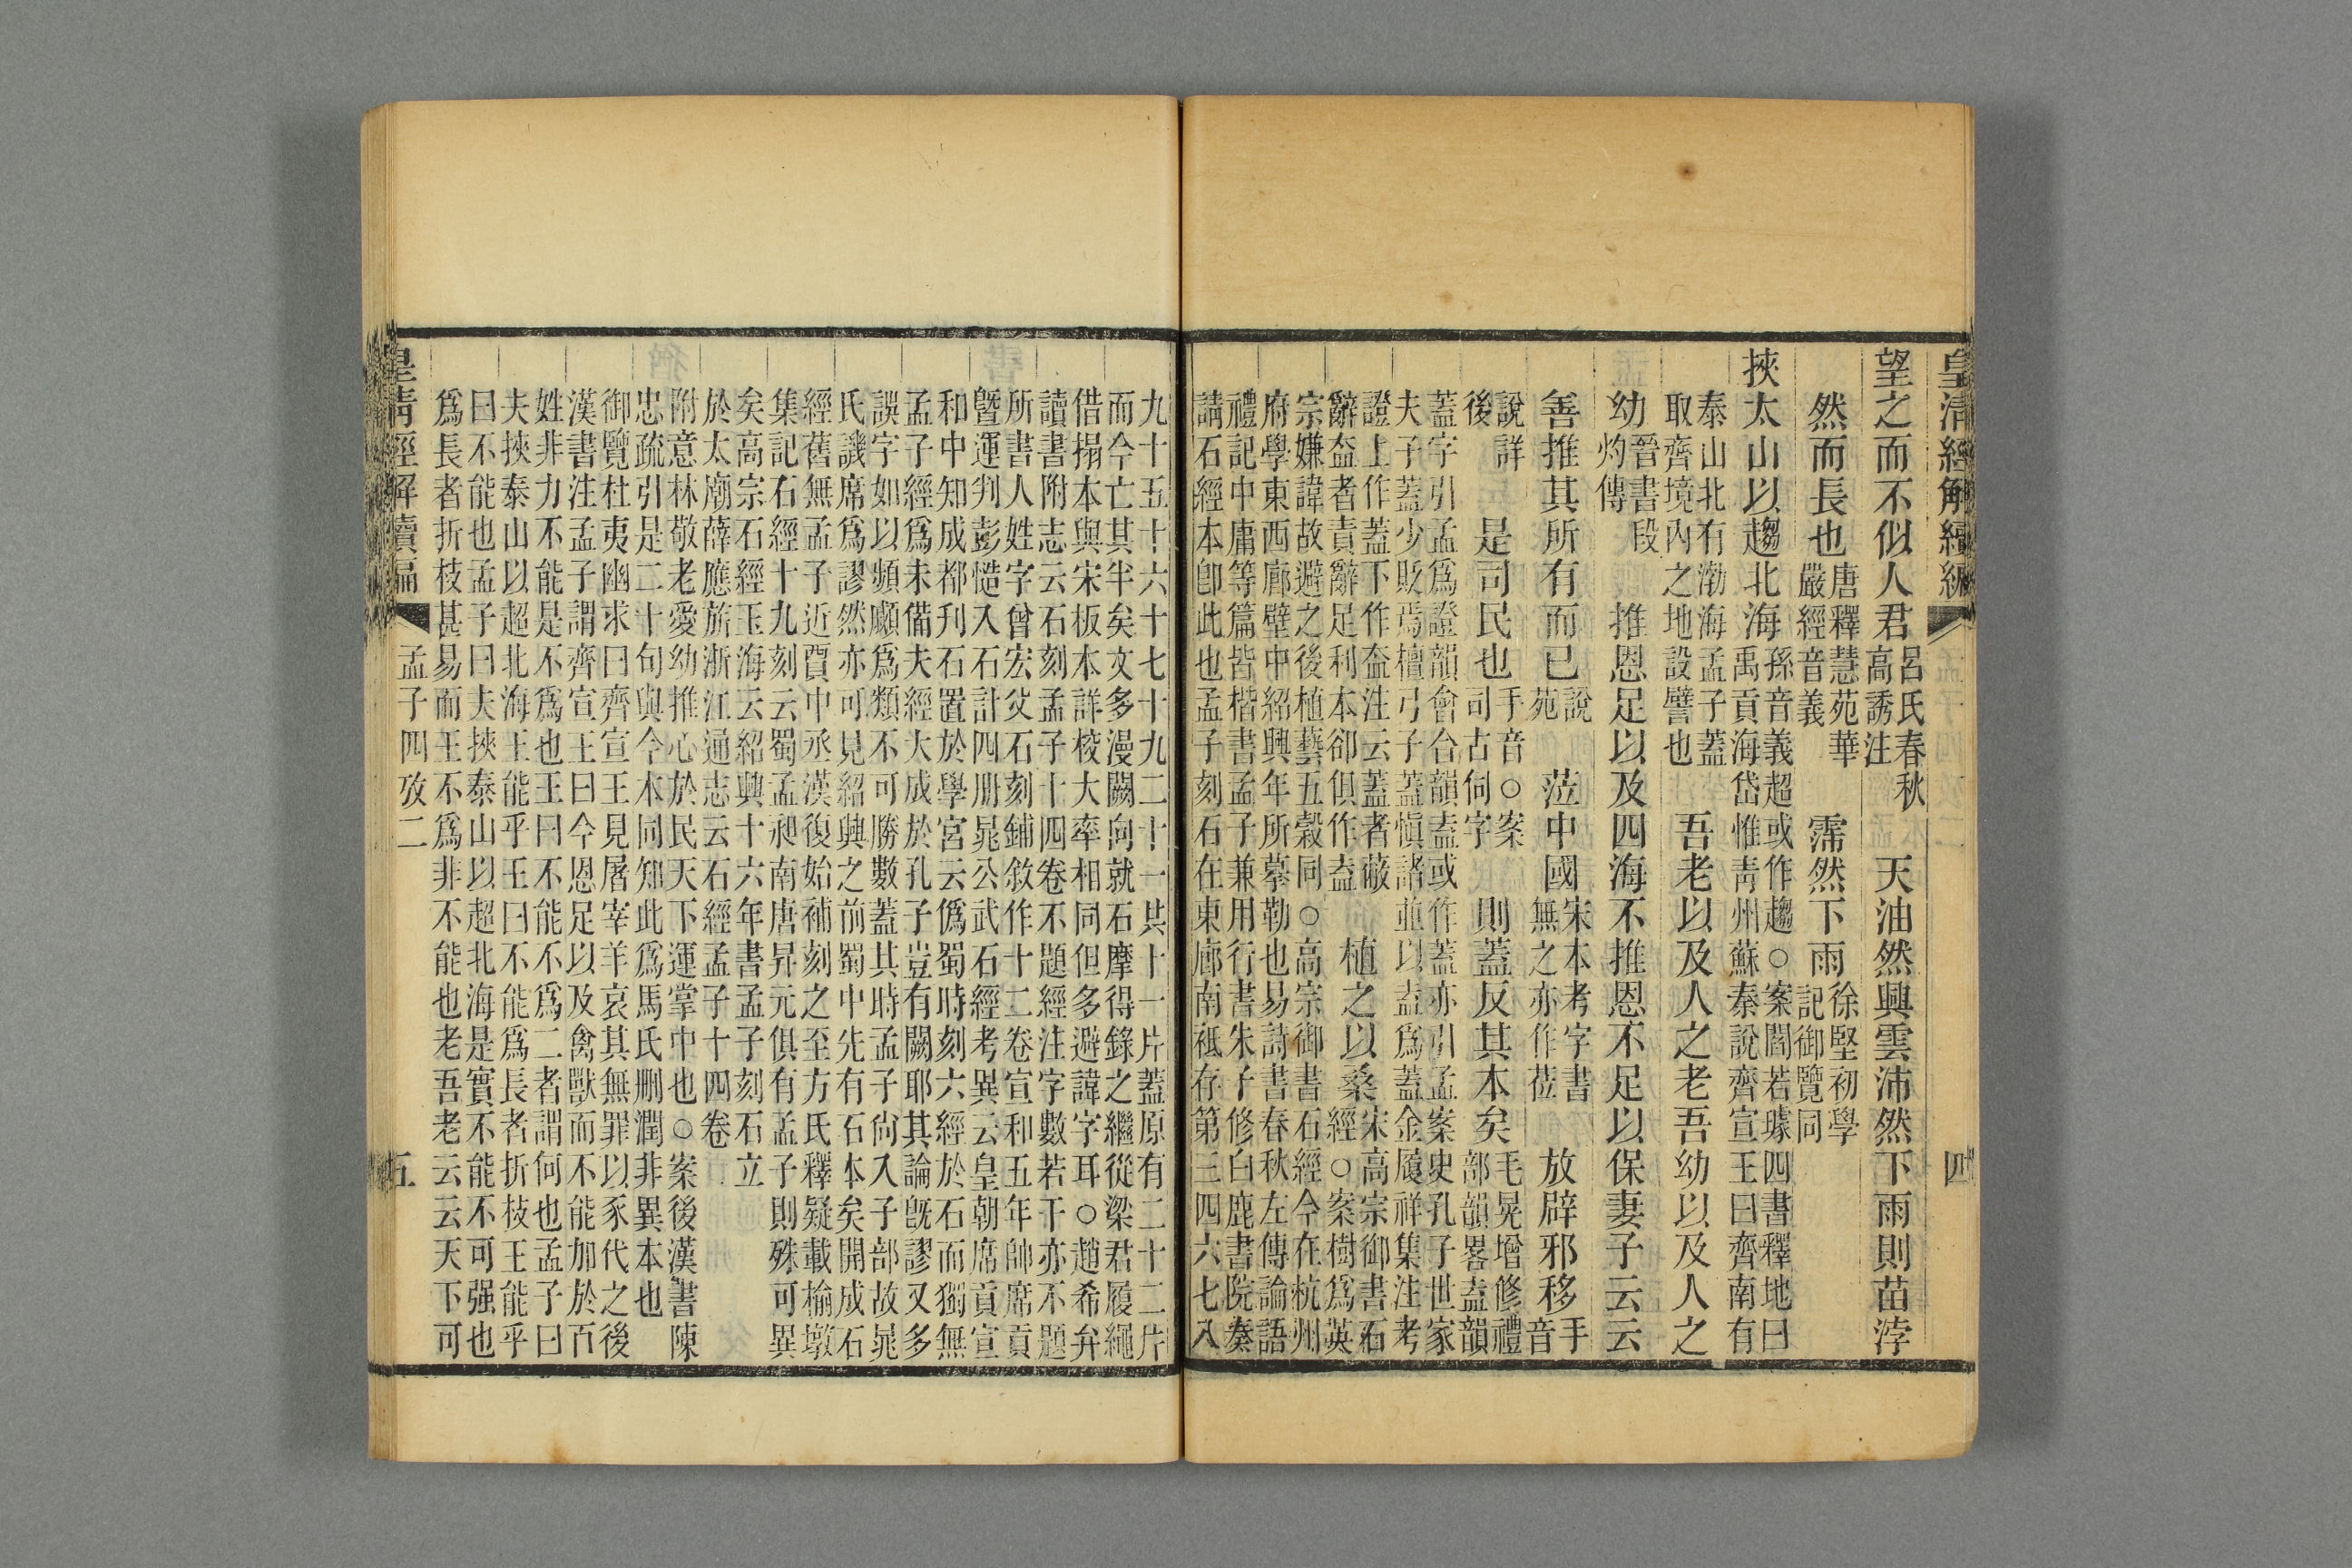 皇清經解續編
四
望之而不似人君呂氏春秋高誘注天油然興雲沛然下雨則苗浡
然而長也唐釋慧苑華嚴經音義霈然下雨徐堅初學記御覽同
挾太山以趨北海孫音義超或作趨○案閻若璩四書釋地曰禹貢海岱惟靑州蘇秦說齊宣王曰齊南有
泰山北有渤海孟子蓋取齊境內之地設譬也吾老以及人之老吾幼以及人之
幼晉書段灼傳推恩足以及四海不推恩不足以保妻子云云
善推其所有而已說苑莅中國宋本考字書無之亦作莅放辟邪移手音
說詳後是司民也手音○案司古伺字則蓋反其本矣毛晃增修禮部韻畧盍韻
蓋字引孟爲證韻會合韻盍或作蓋亦引孟案史孔子世家
夫子蓋少貶焉檀弓子蓋愼諸並以盍爲蓋金履祥集注考
證上作蓋下作盍注云蓋者蔽辭盍者責辭足利本卻俱作盍植之以桑宋高宗御書石經○案樹爲英
宗嫌諱故避之後植藝五穀同○高宗御書石經今在杭州
府學東西廊壁中紹興年所摹勒也易詩書春秋左傳論語
禮記中庸等篇皆楷書孟子兼用行書朱子修白鹿書院奏
請石經本卽此也孟子刻石在東廊南祗存第三四六七八
九十五十六十七十九二十一共十一片蓋原有二十二片
而今亡其半矣文多漫闕向就石摩得錄之繼從梁君履繩
借搨本與宋板本詳校大率相同但多避諱字耳○趙希弁
讀書附志云石刻孟子十四卷不題經注字數若干亦不題
所書人姓字曾宏父石刻鋪敘作十二卷宣和五年帥席貢
曁運判彭慥入石計四册晁公武石經考異云皇朝席貢宣
和中知成都刊石置於學宮云僞蜀時刻六經於石而獨無
孟子經爲未備夫經大成於孔子豈有闕耶其論旣謬又多
誤字如以頻顣爲類不可勝數蓋其時孟子尙入子部故晁
氏譏席爲謬然亦可見紹興之前蜀中先有石本矣開成石
經舊無孟子近賈中丞漢復始補刻之至方氏釋疑載榆墩
集記石經十九刻云蜀孟昶南唐昇元俱有孟子則殊可異
矣高宗石經玉海云紹興十六年書孟子刻石立
於太廟薛應旂浙江通志云石經孟子十四卷
附意林敬老愛幼推心於民天下運掌中也○案後漢書陳
忠疏引是二十句與今本同知此爲馬氏删潤非異本也
御覽杜夷幽求曰齊宣王見屠宰羊哀其無罪以豕代之後
漢書注孟子謂齊宣王曰今恩足以及禽獸而不能加於百
姓非力不能是不爲也王曰不能不爲二者謂何也孟子曰
夫挾泰山以超北海王能乎王曰不能爲長者折枝王能乎
曰不能也孟子曰夫挾泰山以超北海是實不能不可强也
爲長者折枝甚易而王不爲非不能也老吾老云云天下可
皇清經解續編
孟子四攷二
五